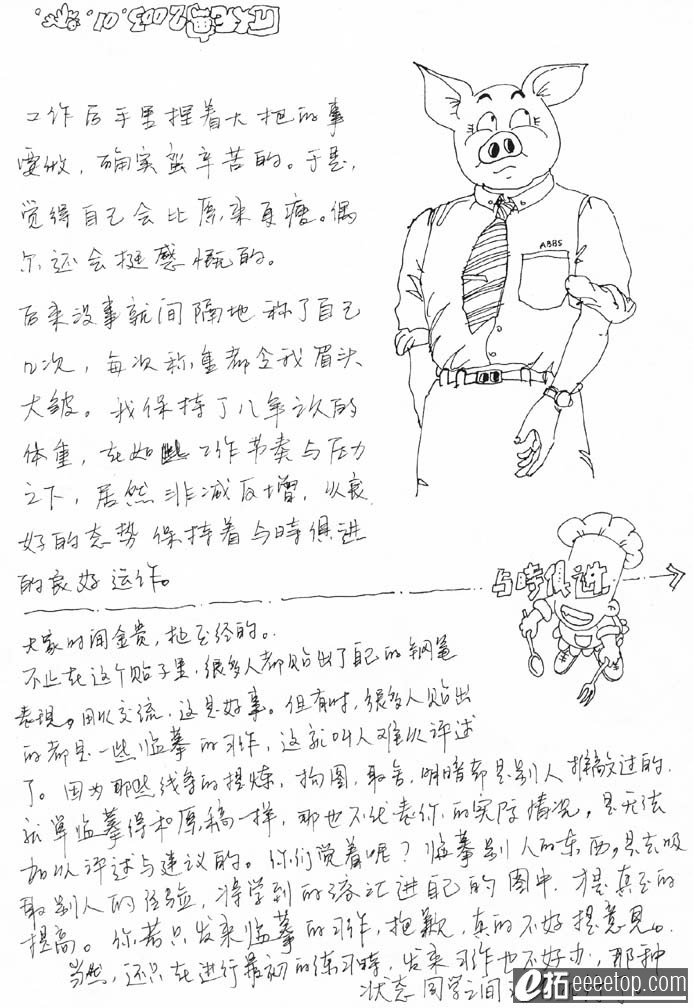 2003.01.
工作后手里捏着大把的事
要做，确实蛮辛苦的。于是，
觉得自己会比原来更瘦。偶
尔还会挺感慨的。
后来没事就间隔地称了自己
几次，每次称重都令我眉头
大皱。我保持了八年之久的
体重，在如此工作节奏与压力
之下，居然非减反增，以良
好的态势保持着与時俱进
的良好运作。
ABBS
与時俱进
大家时间金贵，挺至经的。
不止在这个贴子里，很多人都贴出了自己的钢笔
表现，用以交流，这是好事。但有时，很多人贴出
的都是一些临摹的习作，这就叫人难以评述
了。因为那些线条的提炼，构图，取舍，明暗都是别人推敲过的，
就算临摹得和原稿一样，那也不代表你的实际情况。是无法
加以评述与建议的。你们觉着呢？临摹别人的东西，是去吸
取别人的经验，将学到的溶汇进自己的图中，才是真正的
提高。你若只发来临摹的习作，抱歉，真的不好提意见。
当然，还只在进行最初的练习時，发来习作也不好办，那种
状态同学之间
e拓 eeeetop.com